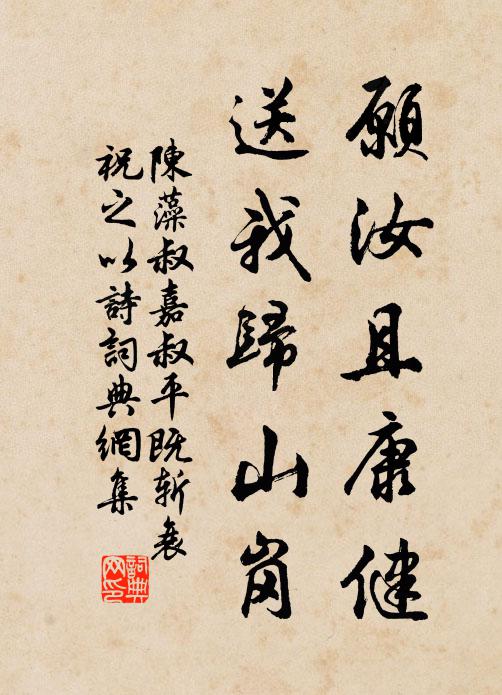 願汝且康健
送我歸山岗
陳藻叔嘉叔平既斬衰
祝之以詩詞典網集
詞典網印